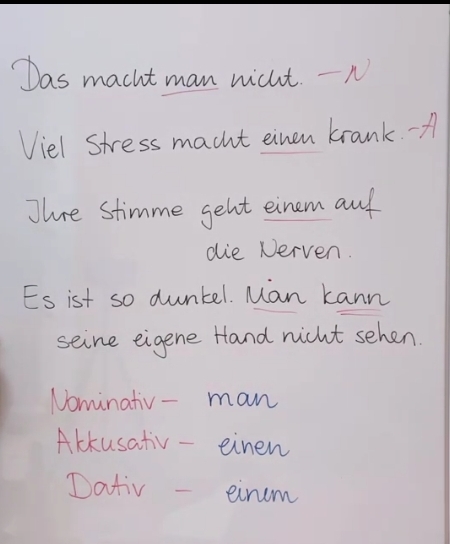 Das macht man nicht. - N
Viel Stress macht einen krank. - A
Ihre Stimme geht einem auf
die Nerven.
Es ist so dunkel. Man kann
seine eigene Hand nicht sehen.
Nominativ - man
Akkusativ - einen
Dativ - einem